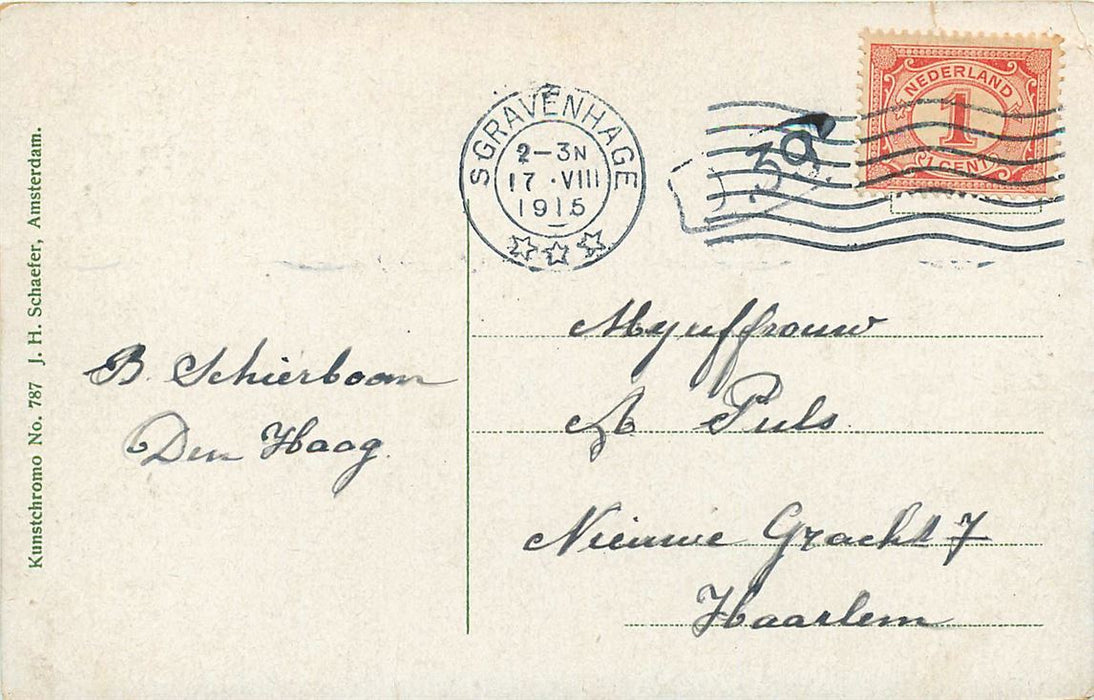 Kunstchromo No. 787 J. H. Schaefer, Amsterdam.
S GRAVENHAGE
2-3N
17 · VIII
1915
NEDERLAND
1
1 CENT
39
B. Schierboom
Den Haag.
Mejuffrouw
A Puls.
Nieuwe Gracht 7
Haarlem